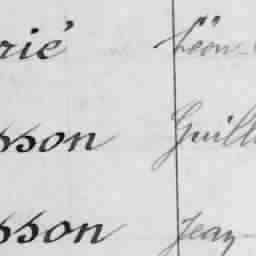 rié Léon
sson Guill
sson Jean